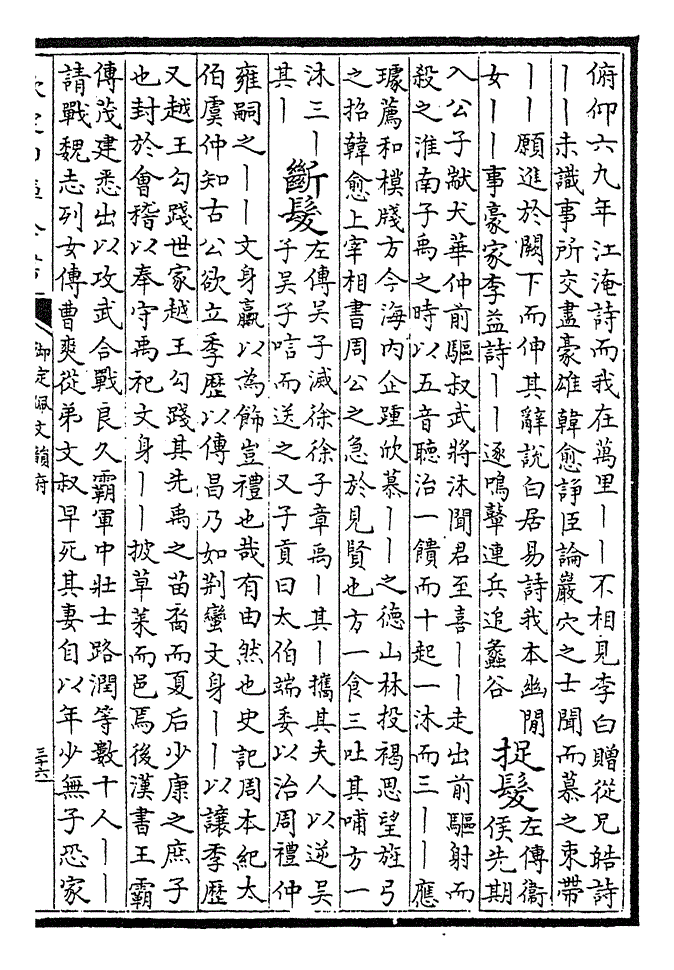 俯仰六九年江淹詩而我在萬里丨丨不相見李白贈從兄皓詩
丨丨未識事所交盡豪雄韓愈諍臣論巖穴之士聞而慕之束帶
丨丨願進於闕下而伸其辭說白居易詩我本幽閒
女丨丨事豪家李益詩丨丨逐鳴鼙連兵追蠡谷
捉髮
左傳衞
侯先期
入公子歂犬華仲前驅叔武將沐聞君至喜丨丨走出前驅射而
殺之淮南子禹之時以五音聽治一饋而十起一沐而三丨丨應
璩薦和模牋方今海內企踵欣慕丨丨之德山林投褐思望旌弓
之招韓愈上宰相書周公之急於見賢也方一食三吐其哺方一
沐三丨
其丨
斷髮
左傳吳子滅徐徐子章禹丨其丨攜其夫人以逆吳
子吳子唁而送之又子貢曰太伯端委以治周禮仲
雍嗣之丨丨文身臝以為飾豈禮也哉有由然也史記周本紀太
伯虞仲知古公欲立季歷以傳昌乃如荆蠻文身丨丨以讓季歷
又越王勾踐世家越王勾踐其先禹之苗裔而夏后少康之庶子
也封於會稽以奉守禹祀文身丨丨披草萊而邑焉後漢書王霸
傳茂建悉出以攻武合戰良久霸軍中壯士路潤等數十人丨丨
請戰魏志列女傳曹爽從弟文叔早死其妻自以年少無子恐家
御定佩文韻府
三十六